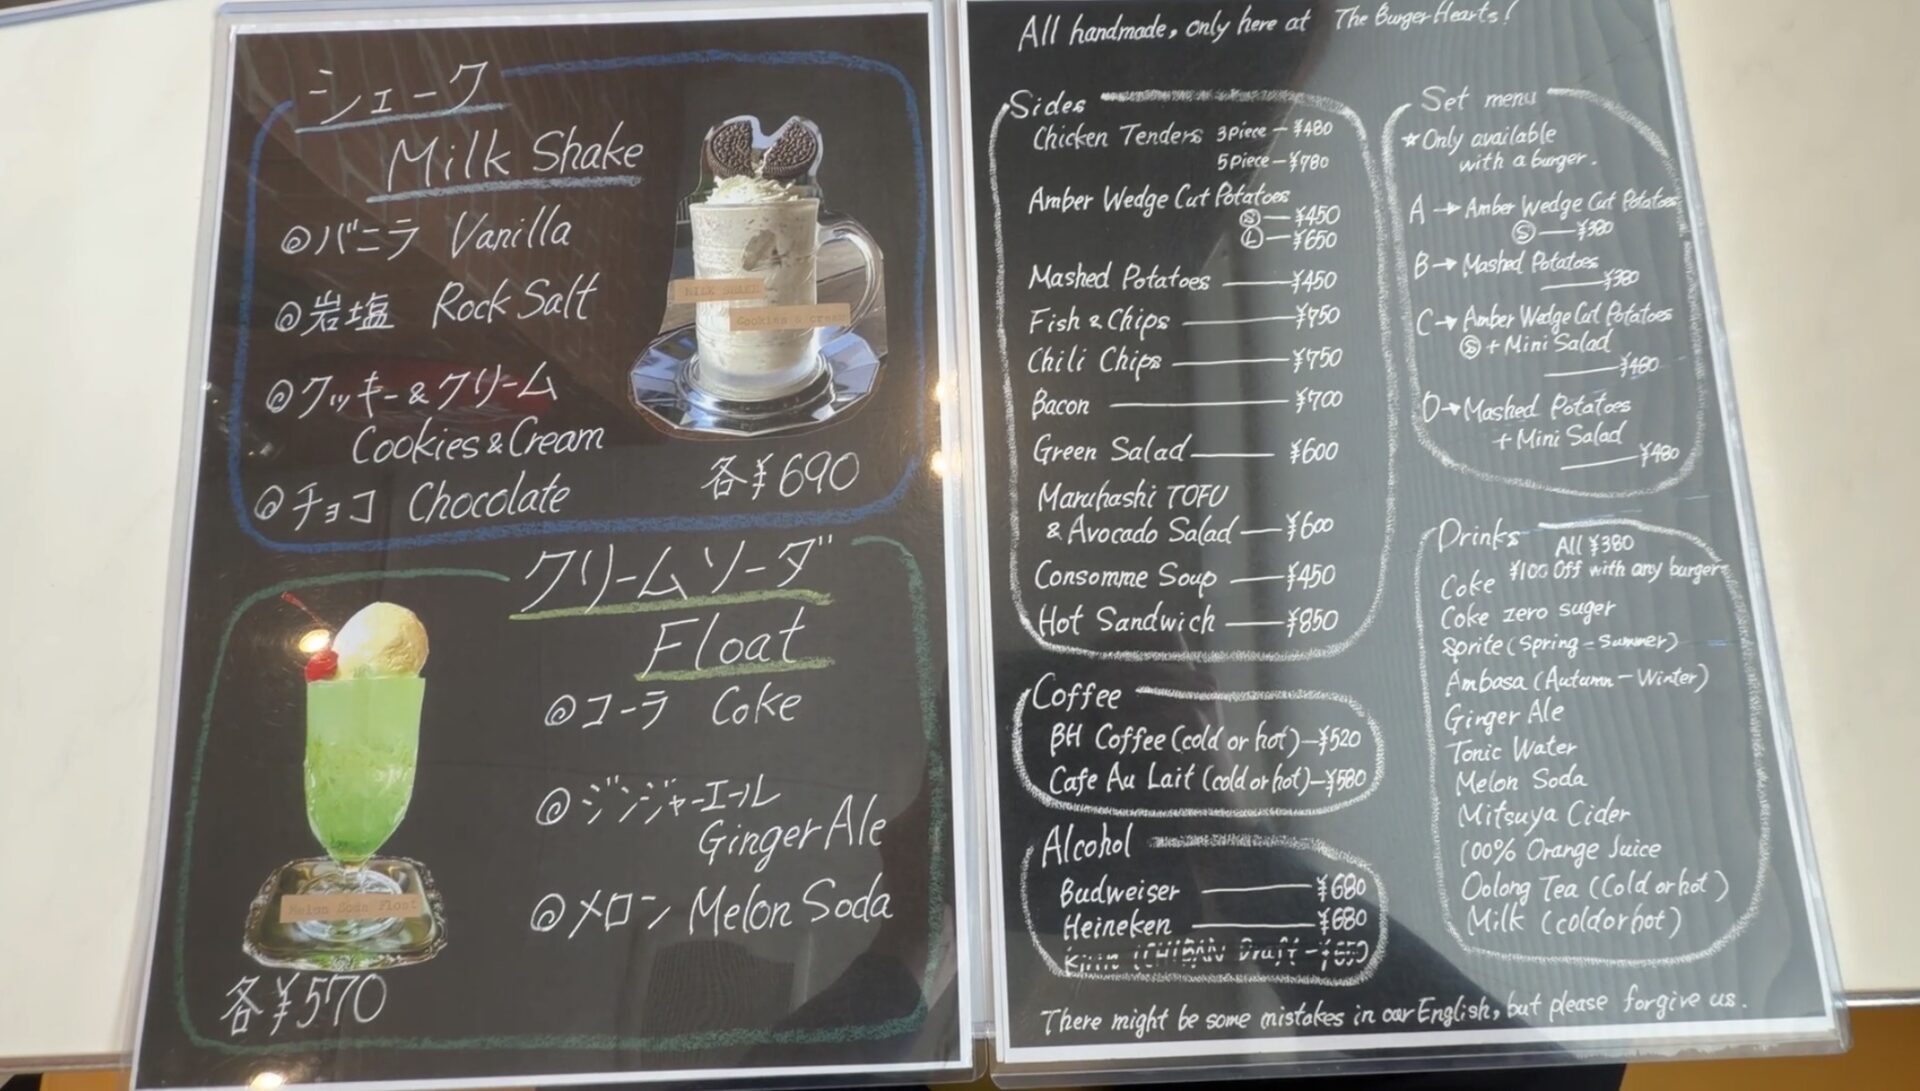 シェーク
Milk Shake
◎バニラ Vanilla
◎岩塩 Rock Salt
◎クッキー&クリーム
Cookies & Cream
◎チョコ Chocolate
MILK SHAKE
Cookies & cream
各¥690
クリームソーダ
Float
◎コーラ Coke
◎ジンジャーエール
Ginger Ale
◎メロン Melon Soda
Melon Soda Float
各¥570
All handmade, only here at The Burger Hearts!
Sides
Chicken Tenders 3piece - ¥480
5piece - ¥780
Amber Wedge Cut Potatoes
Ⓢ - ¥450
Ⓛ - ¥650
Mashed Potatoes - ¥450
Fish & Chips - ¥750
Chili Chips - ¥750
Bacon - ¥700
Green Salad - ¥600
Maruhashi TOFU
& Avocado Salad - ¥600
Consomme Soup - ¥450
Hot Sandwich - ¥850
Coffee
BH Coffee (cold or hot) - ¥520
Cafe Au Lait (cold or hot) - ¥580
Alcohol
Budweiser - ¥680
Heineken - ¥680
Kirin ICHIBAN Draft - ¥650
Set menu
☆Only available
with a burger.
A → Amber Wedge Cut Potatoes
Ⓢ - ¥380
B → Mashed Potatoes
- ¥380
C → Amber Wedge Cut Potatoes
Ⓢ + Mini Salad
- ¥480
D → Mashed Potatoes
+ Mini Salad
- ¥480
Drinks All ¥380
¥100 Off with any burger
Coke
Coke zero suger
Sprite (Spring - Summer)
Ambasa (Autumn - Winter)
Ginger Ale
Tonic Water
Melon Soda
Mitsuya Cider
100% Orange Juice
Oolong Tea (Cold or hot)
Milk (cold or hot)
There might be some mistakes in our English, but please forgive us.